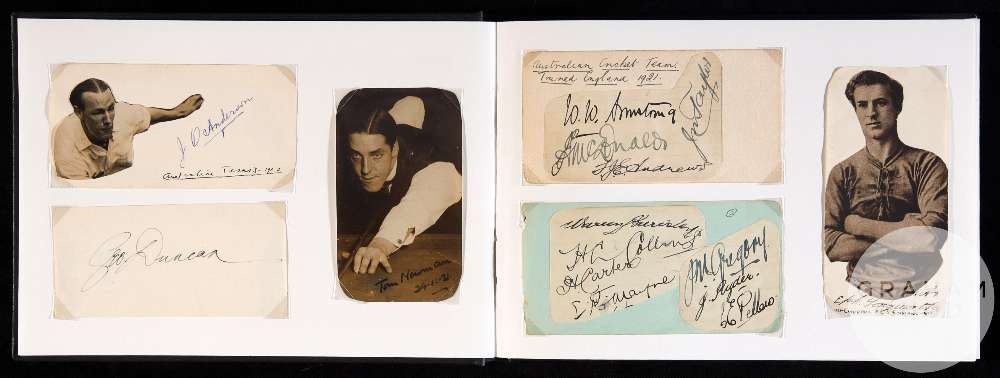 J O Anderson
Australian Tennis - 1922
Jas. Duncan
Tom Newman
24-11-21
Australian Cricket Team.
Toured England 1921.
W. W. Armstrong
J M Taylor
McDonald
T J E Andrews
Warren Bardsley
H L Collins
H Carter
E R Mayne
J M Gregory
J Ryder.
C E Pellew
GRAHAM